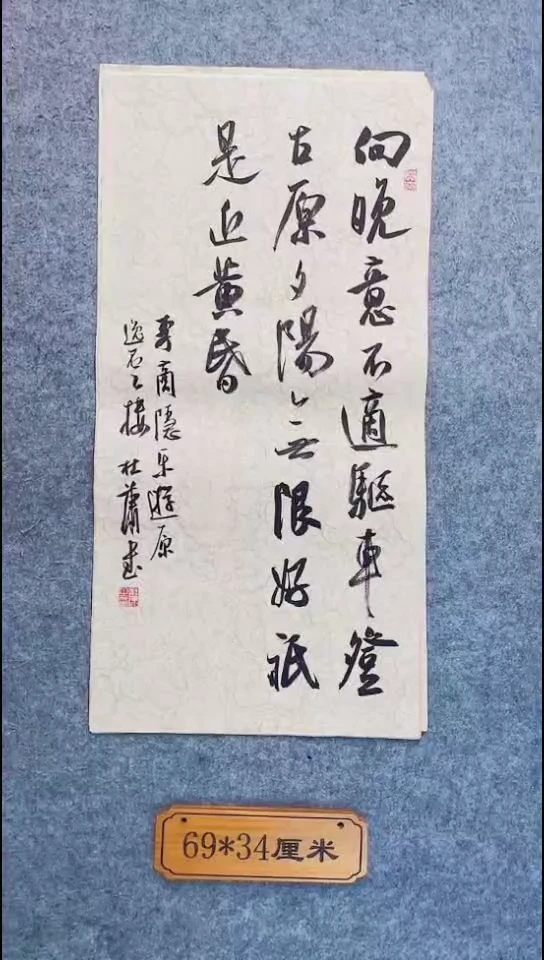 向晚意不適驅車登
古原夕陽無限好祇
是近黄昏
李商隱樂遊原
逸石之樓 杜蕭書
69*34厘米